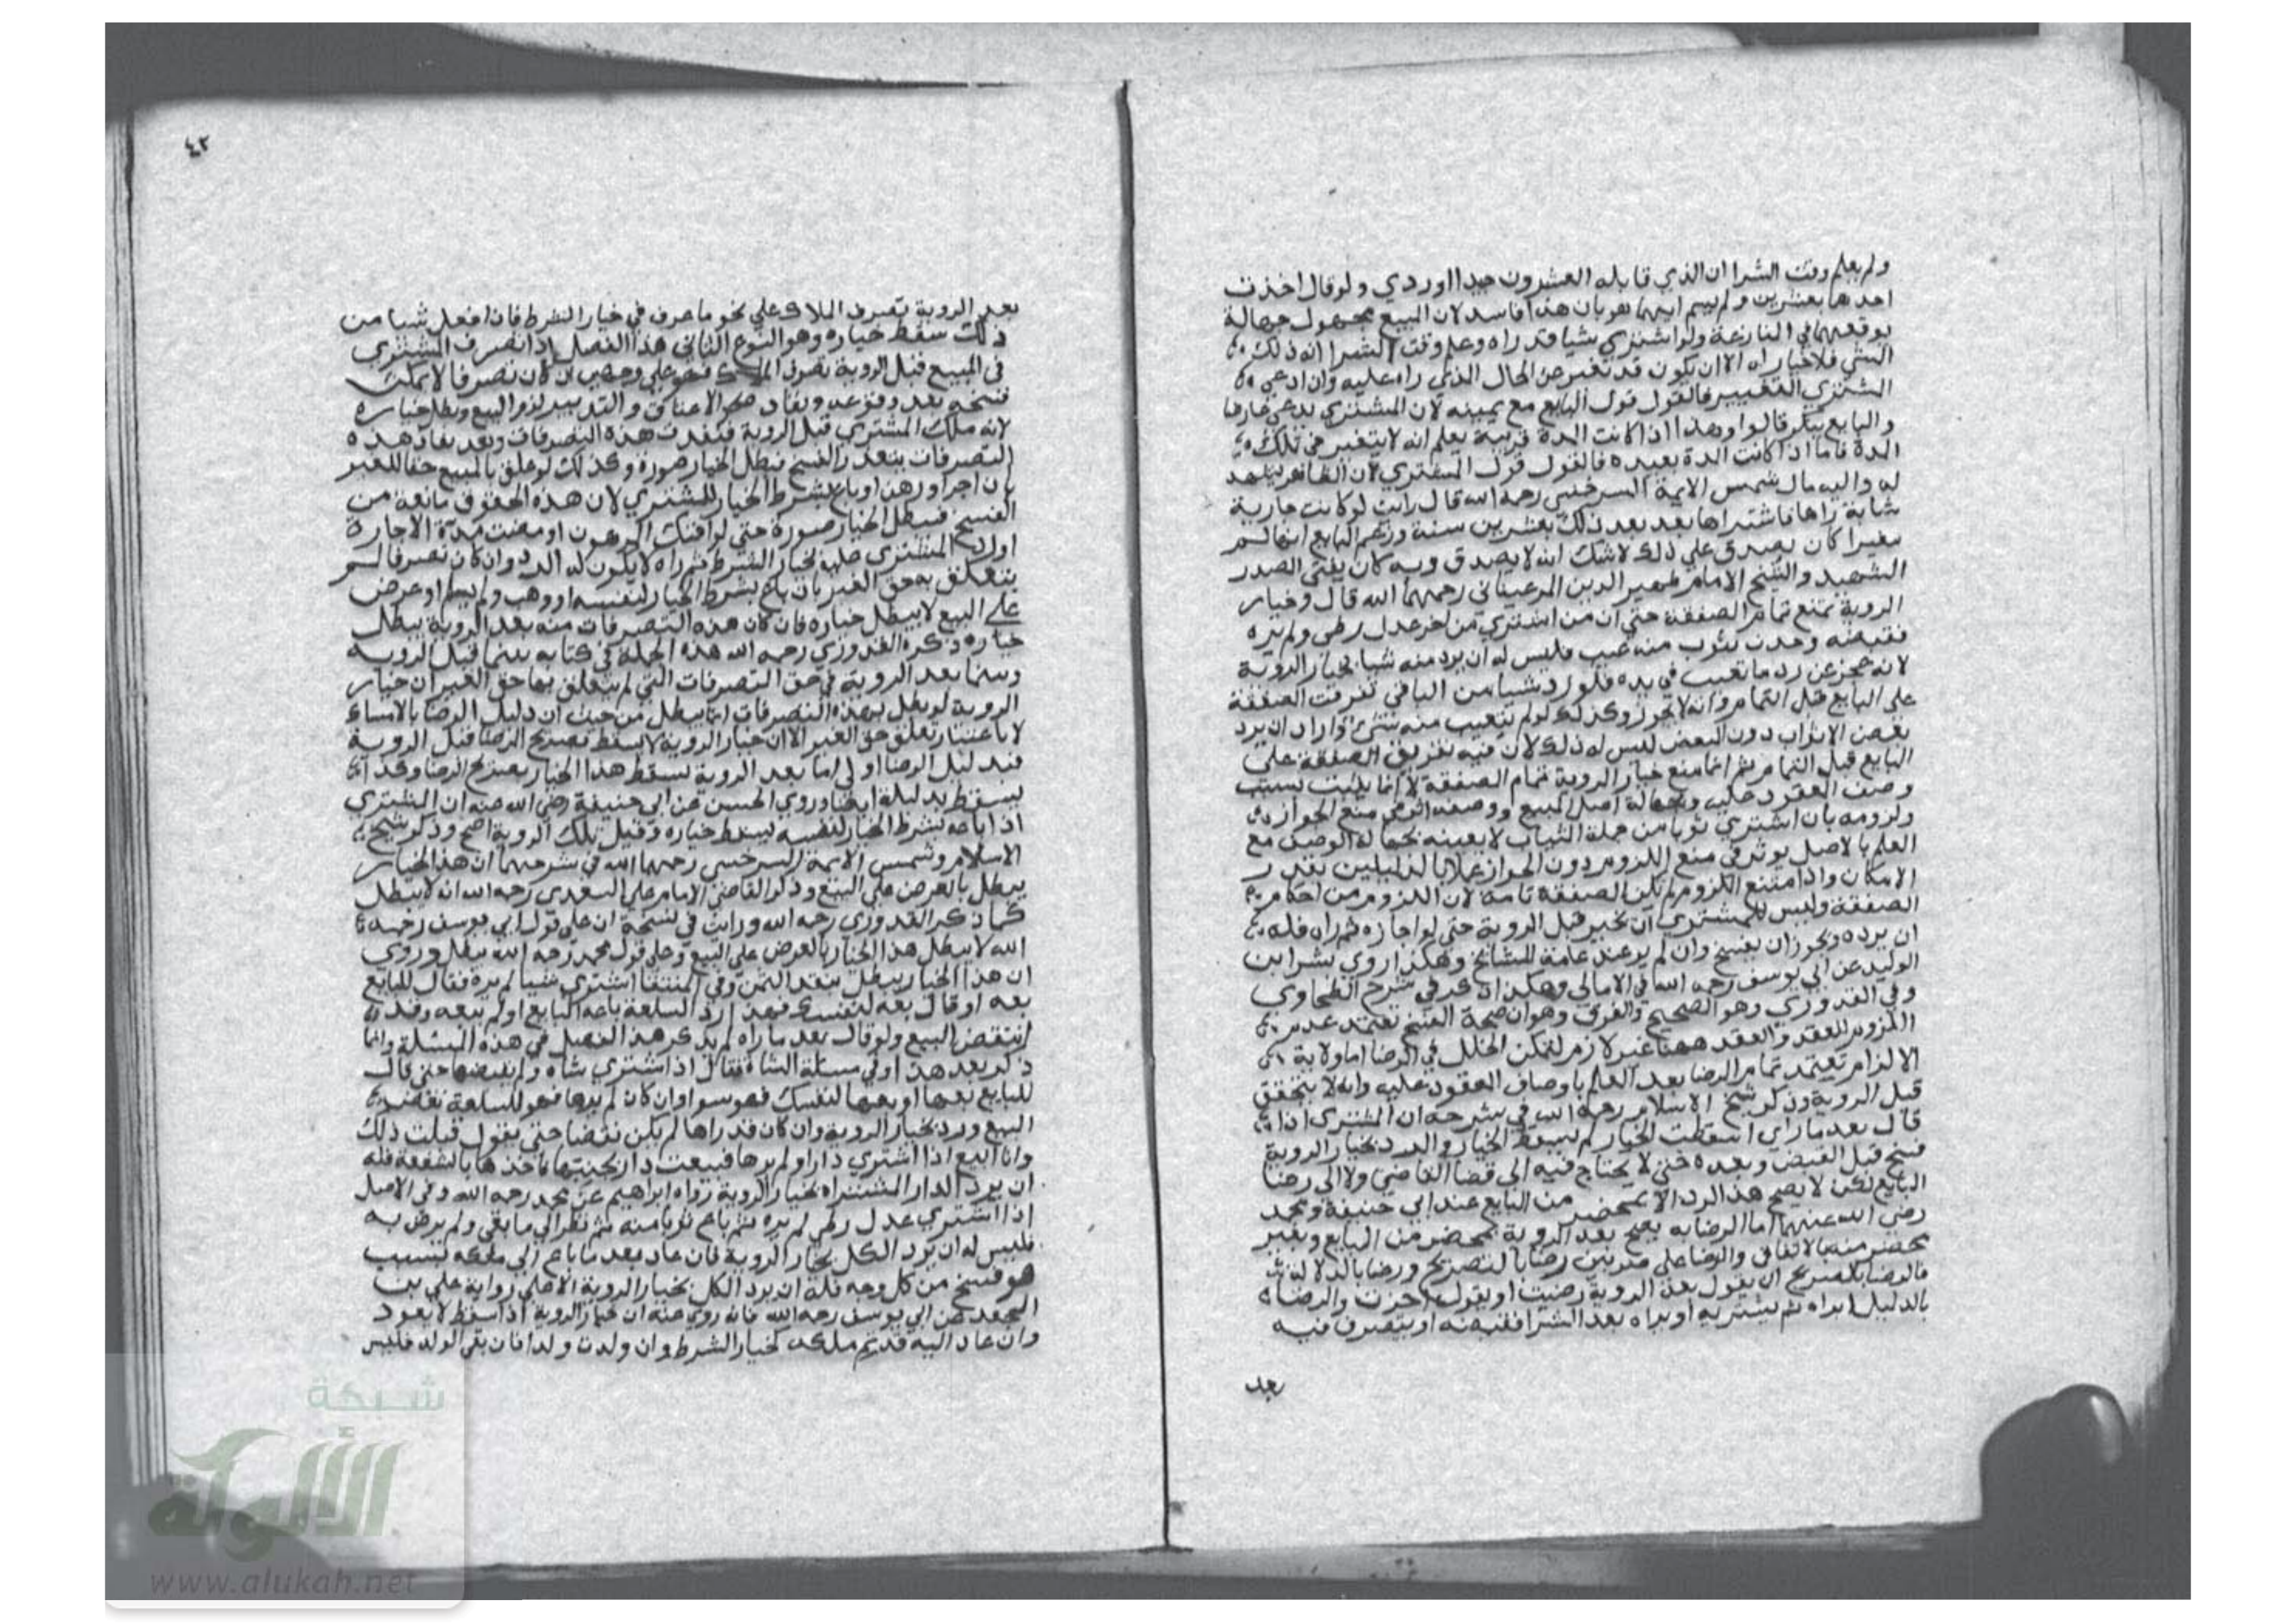 ولم يعلم وقت الشرا ان الذي قابله العشرون جيد اوردي ولو قال اخذت
احدها بعشرين ولم يسم ايهما هو بان هذا فاسد لان المبيع مجهول جهالة
يوقعهما في المنازعة ولو اشترى شيا قد راه وعلم وقت الشرا انه ذلك
الشي فلا خيار له الا ان يكون قد تغير عن الحال الذي راه عليه وان ادعي
المشتري التغيير فالقول قول البايع مع يمينه لان المشتري يدعي عارضا
والبايع ينكر قالوا وهذا اذا كانت المدة قريبة يعلم انه لا يتغير في تلك
المدة فاما اذا كانت المدة بعيدة فالقول قول المشتري لان الظاهر يشهد
له واليه مال شمس الايمة السرخسي رحمه الله قال رايت لو كانت جارية
شابة راها فاشتراها بعد ذلك بعشرين سنة وزعم البايع انها لم
تتغير اكان يصدق علي ذلك لاشك انه لا يصدق وبه كان يفتي الصدر
الشهيد والشيخ الامام ظهير الدين المرغيناني رحمهما الله قال وخيار
الروية تمنع تمام الصفقة حتي ان من اشتري من اخر عدل زطي ولم يره
فقبضه وحدث بثوب منه عيب فليس له ان يرد منه شيا بخيار الروية
لانه عجز عن رد ما تعيب في يده فلو رد شيا من الباقي تفرقت الصفقة
علي البايع قبل التمام وانه لا يجوز وكذلك لو لم يتعيب منه شي واراد ان يرد
بعض الاثواب دون البعض ليس له ذلك لان فيه تفريق الصفقة علي
البايع قبل التمام ثم انما منع خيار الروية تمام الصفقة
وصف المعقود عليه وجهالة اصل المبيع ووصفه
ولزومه بان اشتري ثوبا من جملة الثياب لا بعينه فجهالة الوصف مع
العلم بالاصل يوثر في منع اللزوم دون الجواز عملا بالدليلين بقدر
الامكان واذا امتنع اللزوم لم تكن الصفقة تامة لان اللزوم من احكام
الصفقة وليس للمشتري ان يجيز قبل الروية حتي لو اجازه ثم راه فله
ان يرده ويجوز ان يفسخ وان لم يره عند عامة المشايخ وهكذا روي بشر ابن
الوليد عن ابي يوسف رحمه الله في الامالي وهكذا ذكر في شرح الطحاوي
وفي القدوري وهو الصحيح والفرق وهو ان صحة الفسخ تعتمد عدم
اللزوم للعقد والعقد ههنا غير لازم لتمكن الخلل في الرضا اما ولاية
الالزام تعتمد تمام الرضا بعد العلم باوصاف المعقود عليه وانه لا يتحقق
قبل الروية وذكر شيخ الاسلام رحمه الله في شرحه ان المشتري اذا
قال بعد ما راي اسقطت الخيار لم يسقط الخيار والرد بخيار الروية
فسخ قبل القبض وبعده حتي لا يحتاج فيه الي قضا القاضي ولا الي رضا
البايع لكن لا يصح هذا الرد الا بمحضر من البايع عند ابي حنيفة ومحمد
رضي الله عنهما اما الرضا به يصح بعد الروية بمحضر من البايع وبغير
محضر منه بالاتفاق والرضا علي ضربين رضا بالتصريح ورضا بالدلالة
فالرضا بالصريح ان يقول بعد الروية رضيت او يقول اجزت والرضا
بالدليل يراه ثم يشتريه او يراه بعد الشرا فقبضه او يتصرف فيه
بعد
٤٢
بعد الروية تصرف الملاك علي نحو ما عرف في خيار الشرط فاذا فعل شيا من
ذلك سقط خياره وهو النوع الثاني هذا الفصل اذا تصرف المشتري
في المبيع قبل الروية تصرف الملاك فهو علي وجهين ان كان تصرفا لا يمكن
فسخه بعد وقوعه ونفاذه الاعتاق والتدبير لزم البيع وبطل خياره
لانه ملك المشتري قبل الروية فنفذت هذه التصرفات وبعد نفاذ هذه
التصرفات يتعذر الفسخ فبطل الخيار ضرورة وكذلك لو علق بالمبيع حقا للغير
بان اجر او رهن او باع بشرط الخيار للمشتري لان هذه الحقوق مانعة من
الفسخ فبطل الخيار ضرورة حتي لو افتك المرهون او مضت مدة الاجارة
او رد المشتري عليه بخيار الشرط ثم راه لا يكون له الرد وان كان تصرفا لم
يتعلق به حق الغير بان باع بشرط الخيار لنفسه او وهب ولم يسلم او عرض
علي البيع لا يبطل خياره فان كان هذه التصرفات منه بعد الروية يبطل
خياره ذكره القدوري رحمه الله هذه الجملة في كتابه بينما قبل الروية
وبينما بعد الروية في حق التصرفات التي لم يتعلق بها حق الغير ان خيار
الروية لو بطل بهذه التصرفات انما يبطل من حيث ان دليل الرضا بالامساك
لا باعتبار تعلق حق الغير الا ان خيار الروية لا يسقط بصريح الرضا قبل الروية
فبدليل الرضا اولي اما بعد الروية يسقط هذا الخيار بصريح الرضا وكذا
يسقط بدليله ايضا وروي الحسن عن ابي حنيفة رضي الله عنه ان المشتري
اذا باعه بشرط الخيار لنفسه يسقط خياره وقيل تلك الروية اصح وذكر شيخ
الاسلام وشمس الايمة السرخسي رحمهما الله في شرحيهما ان هذا الخيار
يبطل بالعرض علي البيع وذكر القاضي الامام علي السغدي رحمه الله انه لا يبطل
كما ذكر القدوري رحمه الله ورايت في نسخة ان علي قول ابي يوسف رحمه
الله لا يبطل هذا الخيار بالعرض علي البيع وعلي قول محمد رحمه الله يبطل وروي
ان هذا الخيار يبطل بنقد الثمن وفي المنتقا اشتري شيا لم يره فقال للبايع
بعه او قال بعه لنفسك فهذا رد السلعة باعه البايع او لم يبعه وقد
انتقض البيع ولو قال بعد ما راه لم يذكر هذا الفصل في هذه المسئلة وانما
ذكر بعد هذا في مسئلة الشاة فقال اذا اشتري شاة ولم يقبضها حتي قال
للبايع بعها او بعها لنفسك فهو سوا وان كان لم يرها فهو للسلعة نقض
البيع ورد بخيار الروية وان كان قد راها لم يكن نقضا حتي يقول قبلت ذلك
وانا ابيع اذا اشتري دارا ولم يرها فبيعت دار بجنبها فاخذها بالشفعة فله
ان يرد الدار المشتراه بخيار الروية رواه ابراهيم عن محمد رحمه الله وفي الاصل
اذا اشتري عدل زطي لم يره ثم باع ثوبا منه ثم نظر الي ما بقي ولم يرض به
فليس له ان يرد الكل بخيار الروية فان عاد بعد ما باع الي ملكه بسبب
هو فسخ من كل وجه فله ان يرد الكل بخيار الروية الاصلي رواية علي بن
الجعد عن ابي يوسف رحمه الله فانه روي عنه ان خيار الروية اذا سقط لا يعود
وان عاد اليه قديم ملكه كخيار الشرط وان ولدت ولدا فان بقي الولد فليس
شبكة
الألوكة
www.alukah.net